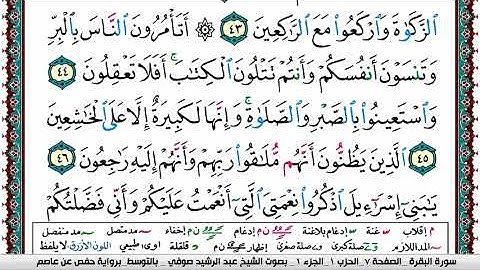 الزَّكَوٰةَ وَارْكَعُوا مَعَ الرَّاكِعِينَ ٤٣ أَتَأْمُرُونَ النَّاسَ بِالْبِرِّ
وَتَنسَوْنَ أَنفُسَكُمْ وَأَنتُمْ تَتْلُونَ الْكِتَابَ ۚ أَفَلَا تَعْقِلُونَ ٤٤
وَاسْتَعِينُوا بِالصَّبْرِ وَالصَّلَوٰةِ ۚ وَإِنَّهَا لَكَبِيرَةٌ إِلَّا عَلَى الْخَاشِعِينَ
٤٥ الَّذِينَ يَظُنُّونَ أَنَّهُم مُّلَاقُوا رَبِّهِمْ وَأَنَّهُمْ إِلَيْهِ رَاجِعُونَ ٤٦
يَابَنِي إِسْرَاءِيلَ اذْكُرُوا نِعْمَتِيَ الَّتِي أَنْعَمْتُ عَلَيْكُمْ وَأَنِّي فَضَّلْتُكُمْ
م إقلاب غنة إدغام بلاغنة إدغام ن م إخفاء مد متصل مد منفصل
مد اللازم صلة كبرى صلة صغرى إظهار ن م قلقلة اوى طبيعي اللون الأزرق لا يلفظ
سورة البقرة _ الصفحة ٧ _ الحزب ١ _ الجزء ١ _ بصوت الشيخ عبد الرشيد صوفي _ بالتوسط _ برواية حفص عن عاصم